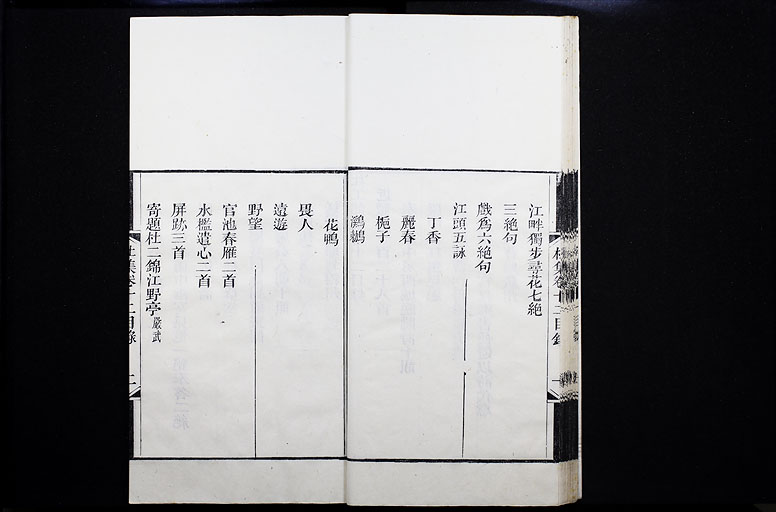 江畔獨步尋花七絕
三絕句
戲爲六絕句
江頭五詠
丁香
麗春
梔子
鸂鶒
花鴨
畏人
遠遊
野望
官池春雁二首
水檻遣心二首
屏跡三首
寄題杜二錦江野亭 嚴武
杜集卷十二目錄 二